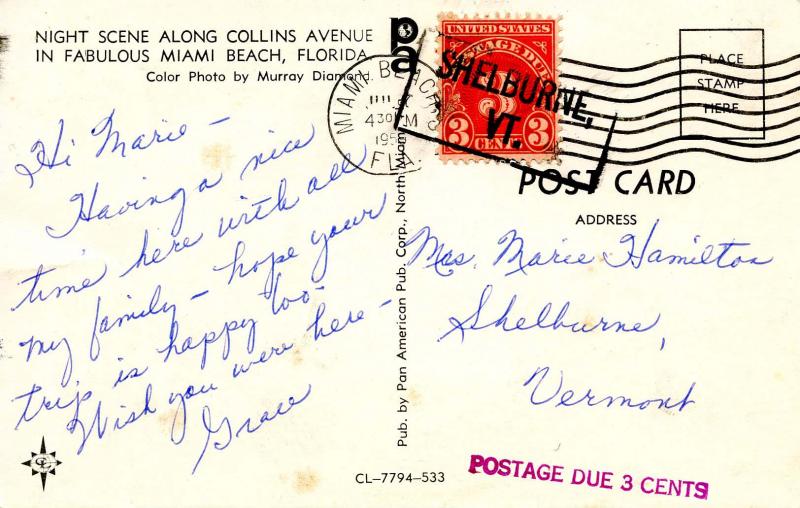 NIGHT SCENE ALONG COLLINS AVENUE
IN FABULOUS MIAMI BEACH, FLORIDA
Color Photo by Murray Diamond
Hi Marie –
Having a nice
time here with all
my family – hope your
trip is happy too –
Wish you were here –
Grace
CL–7794–533
Pub. by Pan American Pub. Corp., North Miami
pa
MIAMI BEACH
430 PM
195
FLA
UNITED STATES
POSTAGE DUE
3 CENTS 3
SHELBURNE,
VT.
PLACE
STAMP
HERE
POST CARD
ADDRESS
Mrs. Marie Hamilton
Shelburne,
Vermont
POSTAGE DUE 3 CENTS